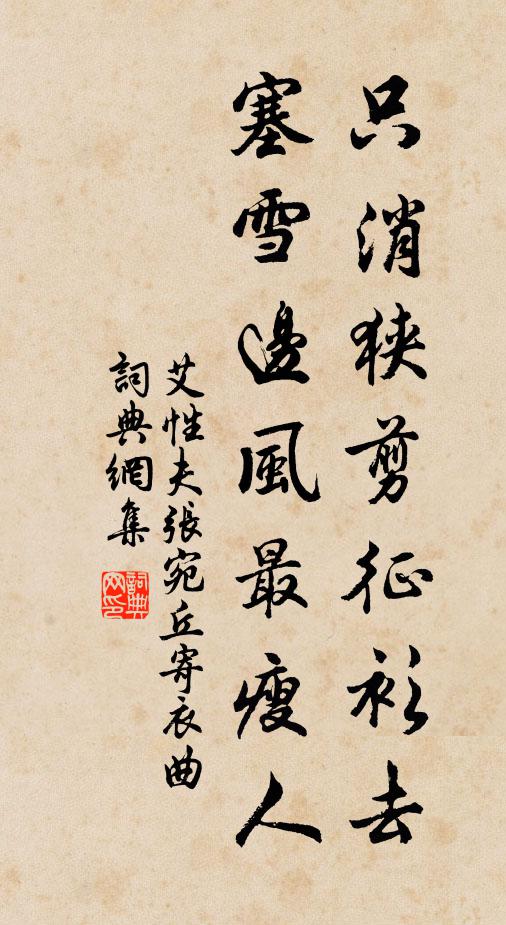 只消狹剪征衫去
塞雪邊風最瘦人
艾性夫張宛丘寄衣曲
詞典網集
詞典
网印